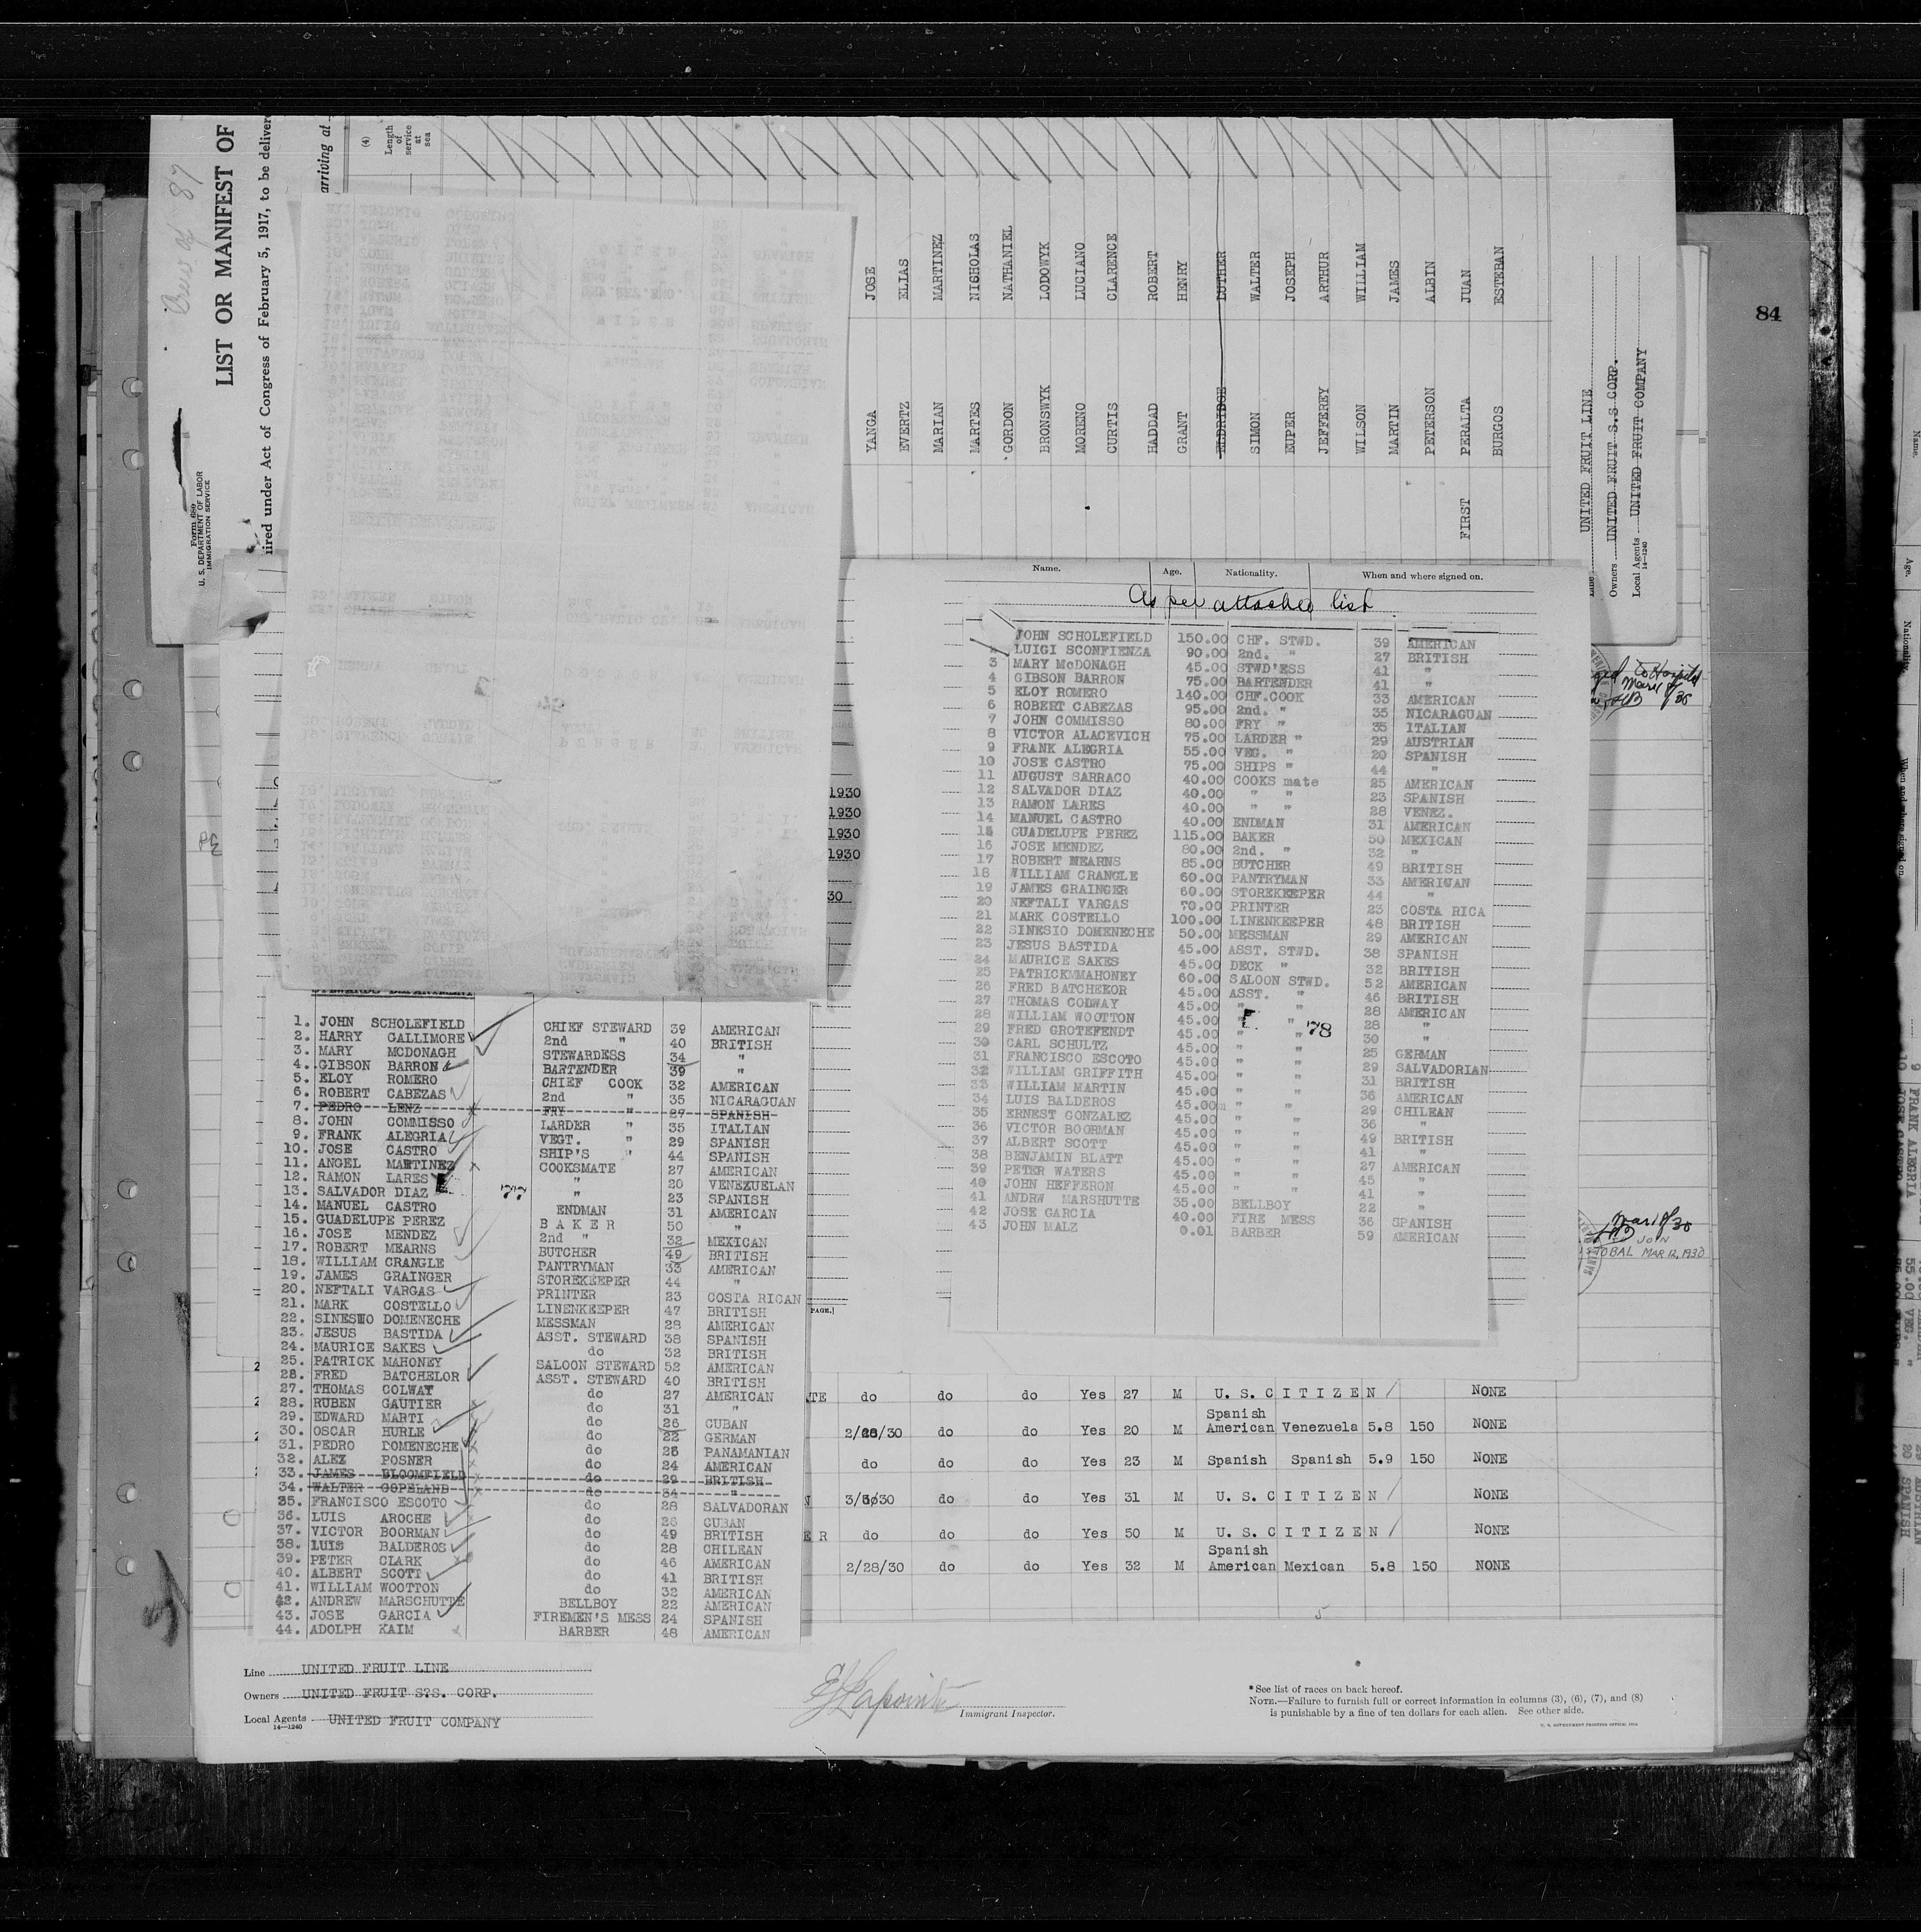 LIST OR MANIFEST OF
ired under Act of Congress of February 5, 1917, to be delivere
arriving at
Form 680
U. S. DEPARTMENT OF LABOR
IMMIGRATION SERVICE
(4)
Length
of
service
at
sea
YANGA JOSE
EVERTZ ELIAS
MARIAN MARTINEZ
MARTES NICHOLAS
GORDON NATHANIEL
BRONSWYK LODOWYK
MORENO LUCIANO
CURTIS CLARENCE
HADDAD ROBERT
GRANT HENRY
ELDRIDGE LUTHER
SIMON WALTER
EUPER JOSEPH
JEFFEREY ARTHUR
WILSON WILLIAM
MARTIN JAMES
PETERSON ALBIN
FIRST PERALTA JUAN
BURGOS ESTEBAN
Line UNITED FRUIT LINE
Owners UNITED FRUIT S.S CORP.
Local Agents UNITED FRUIT COMPANY
14—1240
84
Name. Age. Nationality. When and where signed on.
As per attached list
JOHN SCHOLEFIELD 150.00 CHF. STWD. 39 AMERICAN
2 LUIGI SCONFIENZA 90.00 2nd. " 27 BRITISH
3 MARY McDONAGH 45.00 STWD'ESS 41 "
4 GIBSON BARRON 75.00 BARTENDER 41 "
5 ELOY ROMERO 140.00 CHF.COOK 33 AMERICAN
6 ROBERT CABEZAS 95.00 2nd. " 35 NICARAGUAN
7 JOHN COMMISSO 80.00 FRY " 35 ITALIAN
8 VICTOR ALACEVICH 75.00 LARDER " 29 AUSTRIAN
9 FRANK ALEGRIA 55.00 VEG. " 20 SPANISH
10 JOSE CASTRO 75.00 SHIPS " 44 "
11 AUGUST SARRACO 40.00 COOKS mate 25 AMERICAN
12 SALVADOR DIAZ 40.00 " " 23 SPANISH
13 RAMON LARES 40.00 " " 28 VENEZ.
14 MANUEL CASTRO 40.00 ENDMAN 31 AMERICAN
15 GUADELUPE PEREZ 115.00 BAKER 50 MEXICAN
16 JOSE MENDEZ 80.00 2nd. " 32 "
17 ROBERT MEARNS 85.00 BUTCHER 49 BRITISH
18 WILLIAM CRANGLE 60.00 PANTRYMAN 33 AMERICAN
19 JAMES GRAINGER 60.00 STOREKEEPER 44 "
20 NEFTALI VARGAS 70.00 PRINTER 23 COSTA RICA
21 MARK COSTELLO 100.00 LINENKEEPER 48 BRITISH
22 SINESIO DOMENECHE 50.00 MESSMAN 29 AMERICAN
23 JESUS BASTIDA 45.00 ASST. STWD. 38 SPANISH
24 MAURICE SAKES 45.00 DECK " 32 BRITISH
25 PATRICKMMAHONEY 60.00 SALOON STWD. 52 AMERICAN
26 FRED BATCHEKOR 45.00 ASST. " 46 BRITISH
27 THOMAS COLWAY 45.00 " " 28 AMERICAN
28 WILLIAM WOOTTON 45.00 " 28 "
29 FRED GROTEFENDT 45.00 " " 78 30 "
30 CARL SCHULTZ 45.00 " " 25 GERMAN
31 FRANCISCO ESCOTO 45.00 " " 29 SALVADORIAN
32 WILLIAM GRIFFITH 45.00 " " 31 BRITISH
33 WILLIAM MARTIN 45.00 " " 36 AMERICAN
34 LUIS BALDEROS 45.00 " " 29 CHILEAN
35 ERNEST GONZALEZ 45.00 " " 36 "
36 VICTOR BOORMAN 45.00 " " 49 BRITISH
37 ALBERT SCOTT 45.00 " " 41 "
38 BENJAMIN BLATT 45.00 " " 27 AMERICAN
39 PETER WATERS 45.00 " " 45 "
40 JOHN HEFFERON 45.00 " " 41 "
41 ANDRW MARSHUTTE 35.00 BELLBOY 22 "
42 JOSE GARCIA 40.00 FIRE MESS 36 SPANISH
43 JOHN MALZ 0.01 BARBER 59 AMERICAN
1930
1930
1930
1930
30
STEWARDS DEPARTMENT
1. JOHN SCHOLEFIELD CHIEF STEWARD 39 AMERICAN
2. HARRY GALLIMORE 2nd " 40 BRITISH
3. MARY MCDONAGH STEWARDESS 34 "
4. GIBSON BARRON BARTENDER 39 "
5. ELOY ROMERO CHIEF COOK 32 AMERICAN
6. ROBERT CABEZAS 2nd " 35 NICARAGUAN
7. PEDRO LENZ FRY " 27 SPANISH
8. JOHN COMMISSO LARDER " 35 ITALIAN
9. FRANK ALEGRIA VEGT. " 29 SPANISH
10. JOSE CASTRO SHIP'S " 44 SPANISH
11. ANGEL MARTINEZ COOKSMATE 27 AMERICAN
12. RAMON LARES " 20 VENEZUELAN
13. SALVADOR DIAZ 77 " 23 SPANISH
14. MANUEL CASTRO ENDMAN 31 AMERICAN
15. GUADELUPE PEREZ BAKER 50 "
16. JOSE MENDEZ 2nd " 32 MEXICAN
17. ROBERT MEARNS BUTCHER 49 BRITISH
18. WILLIAM CRANGLE PANTRYMAN 33 AMERICAN
19. JAMES GRAINGER STOREKEEPER 44 "
20. NEFTALI VARGAS PRINTER 23 COSTA RICAN
21. MARK COSTELLO LINENKEEPER 47 BRITISH
22. SINESIO DOMENECHE MESSMAN 28 AMERICAN
23. JESUS BASTIDA ASST. STEWARD 38 SPANISH
24. MAURICE SAKES do 32 BRITISH
25. PATRICK MAHONEY SALOON STEWARD 52 AMERICAN
26. FRED BATCHELOR ASST. STEWARD 40 BRITISH
27. THOMAS COLWAY do 27 AMERICAN
28. RUBEN GAUTIER do 31 "
29. EDWARD MARTI do 26 CUBAN
30. OSCAR HURLE do 22 GERMAN
31. PEDRO DOMENECHE do 26 PANAMANIAN
32. ALEX POSNER do 24 AMERICAN
33. JAMES BLOOMFIELD do 29 BRITISH
34. WALTER COPELAND do 34 "
35. FRANCISCO ESCOTO do 28 SALVADORAN
36. LUIS AROCHE do 26 CUBAN
37. VICTOR BOORMAN do 49 BRITISH
38. LUIS BALDEROS do 28 CHILEAN
39. PETER CLARK do 46 AMERICAN
40. ALBERT SCOTT do 41 BRITISH
41. WILLIAM WOOTTON do 32 AMERICAN
42. ANDREW MARSCHUTTE BELLBOY 22 AMERICAN
43. JOSE GARCIA FIREMEN'S MESS 24 SPANISH
44. ADOLPH KAIM BARBER 48 AMERICAN
PAGE.]
TE do do do Yes 27 M U. S. CITIZEN / NONE
Spanish
2/28/30 do do Yes 20 M American Venezuela 5.8 150 NONE
do do do Yes 23 M Spanish Spanish 5.9 150 NONE
N 3/5/30 do do Yes 31 M U. S. CITIZEN / NONE
ER do do do Yes 50 M U. S. CITIZEN / NONE
Spanish
2/28/30 do do Yes 32 M American Mexican 5.8 150 NONE
to Hospital
JOIN
TOBAL MAR 12, 1930
Line UNITED FRUIT LINE
Owners UNITED FRUIT S?S. CORP.
Local Agents UNITED FRUIT COMPANY
14—1240
Immigrant Inspector.
*See list of races on back hereof.
NOTE.—Failure to furnish full or correct information in columns (3), (6), (7), and (8)
is punishable by a fine of ten dollars for each alien. See other side.
U. S. GOVERNMENT PRINTING OFFICE
Name.
Age.
Nationality.
When and where signed on.
9 FRANK ALEGRIA 55.00 VEG. " 20 SPANISH